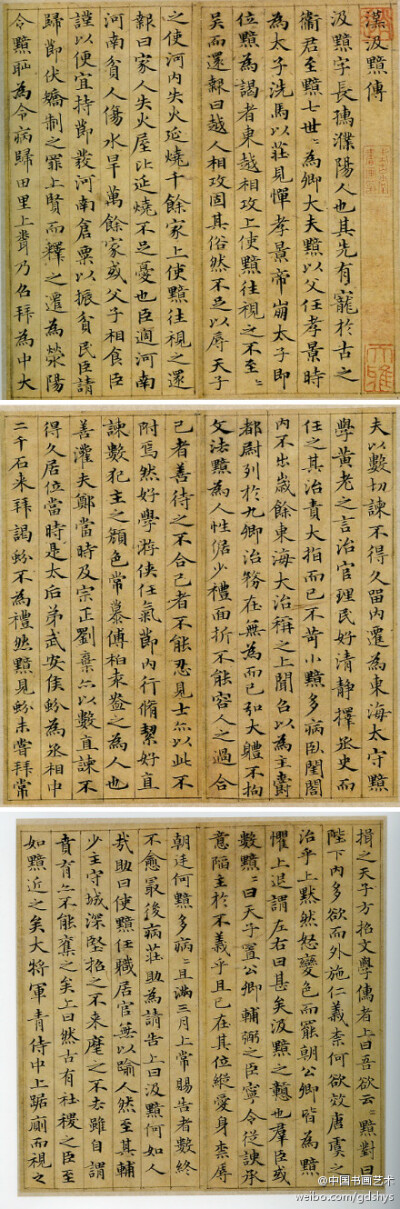 漢汲黯傳
汲黯字長孺濮陽人也其先有寵於古之
衞君至黯七世〻為卿大夫黯以父任孝景時
為太子洗馬以莊見憚孝景帝崩太子即
位黯為謁者東越相攻上使黯往視之不至〻
吴而還報曰越人相攻固其俗然不足以辱天子
之使河内失火延燒千餘家上使黯往視之還
報曰家人失火屋比延燒不足憂也臣過河南
河南貧人傷水旱萬餘家或父子相食臣
謹以便宜持節發河南倉粟以振貧民臣請
歸節伏矯制之罪上賢而釋之遷為滎陽
令黯恥為令病歸田里上聞乃召拜為中大
夫以數切諫不得久留内遷為東海太守黯
學黄老之言治官理民好清静擇丞史而
任之其治責大指而已不苛小黯多病卧閨閤
内不出歲餘東海大治稱之上聞召以為主爵
都尉列於九卿治務在無為而已弘大體不拘
文法黯為人性倨少禮面折不能容人之過合
己者善待之不合己者不能忍見士亦以此不
附焉然好學游俠任氣節内行脩絜好直
諫數犯主之顔色常慕傅柏袁盎之為人也
善灌夫鄭當時及宗正劉棄亦以數直諫不
得久居位當時是太后弟武安侯蚡為丞相中
二千石来拜謁蚡不為禮然黯見蚡未嘗拜常
揖之天子方招文學儒者上曰吾欲云〻黯對曰
陛下内多欲而外施仁義柰何欲效唐虞之
治乎上黙然怒變色而罷朝公卿皆為黯
懼上退謂左右曰甚矣汲黯之戇也羣臣或
數黯〻曰天子置公卿輔弼之臣寧令從諛承
意陷主於不義乎且已在其位縱愛身柰辱
朝廷何黯多病〻且滿三月上常賜告者數終
不愈最後病莊助為請告上曰汲黯何如人
㢤助曰使黯任職居官無以踰人然至其輔
少主守城深堅招之不来麾之不去雖自謂
賁育亦不能奪之矣上曰然古有社稷之臣至
如黯近之矣大將軍青侍中上踞廁而視之
@中国书画艺术
weibo.com/gdshys